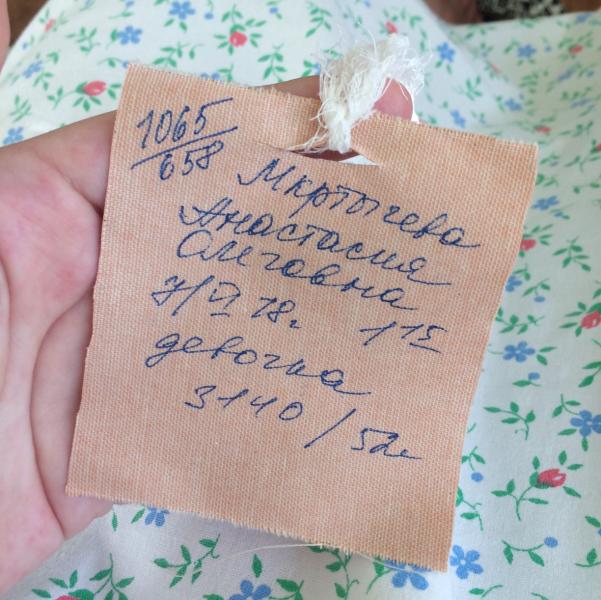 1065/658
Мкртычева
Анастасия
Олеговна
7/VI 18г. 1 15
девочка
3140/52см